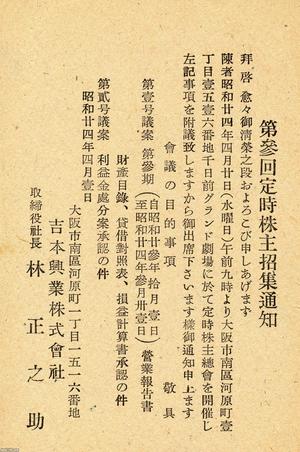 第參回定時株主招集通知
拜啓 愈々御清榮之段およろこび申しあげます
陳者昭和廿四年四月廿日(水曜日)午前九時より大阪市南區河原町壹
丁目壹五壹六番地千日前グランド劇場に於て定時株主總會を開催し
左記事項を附議致しますから御出席下さいます樣御通知申上ます
敬具
會議の目的事項
第壹号議案 第參期(自昭和廿參年拾月壹日 至昭和廿四年參月卅壹日)營業報告書
財產目錄、貸借對照表、損益計算書承認の件
第貳号議案 利益金處分案承認の件
昭和廿四年四月壹日
大阪市南區河原町一丁目一五一六番地
吉本興業株式會社
取締役社長 林正之助